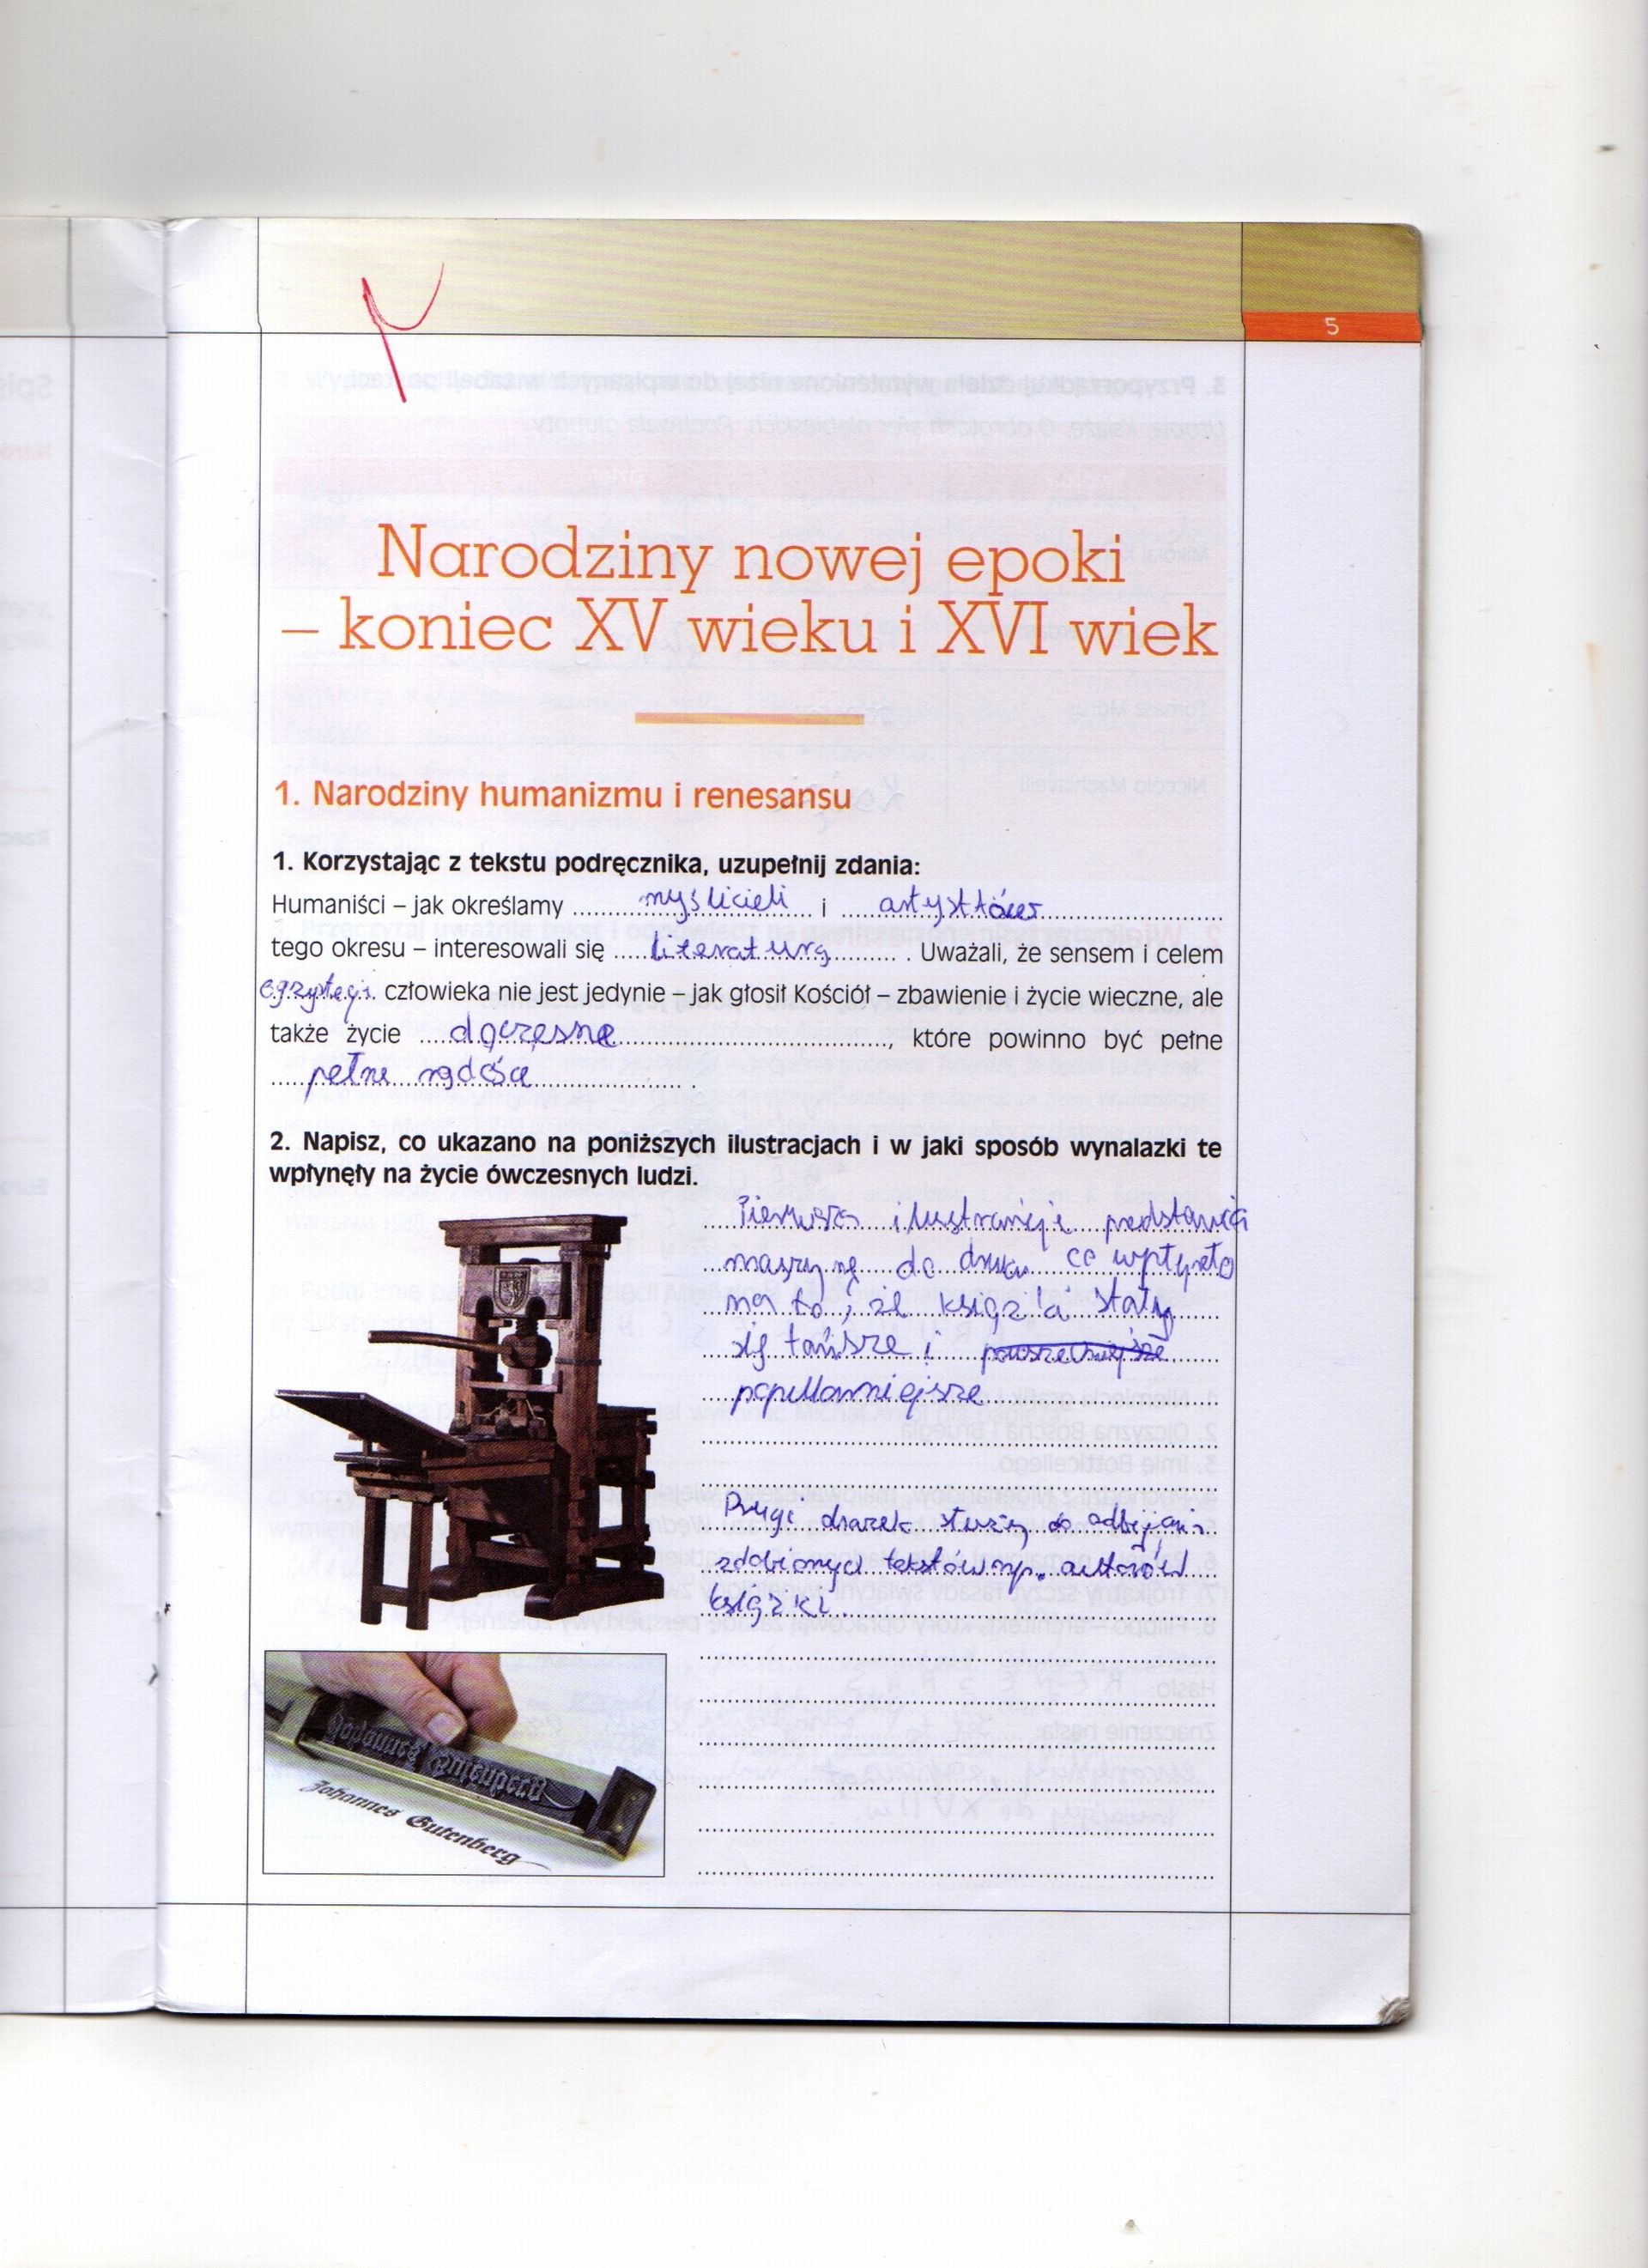 5
Narodziny nowej epoki
– koniec XV wieku i XVI wiek
1. Narodziny humanizmu i renesansu
1. Korzystając z tekstu podręcznika, uzupełnij zdania:
Humaniści – jak określamy ... myślicieli ... i ... artystów ...
tego okresu – interesowali się ... literaturą ... . Uważali, że sensem i celem
egzystęcji. człowieka nie jest jedynie – jak głosił Kościół – zbawienie i życie wieczne, ale
także życie ... doczesne ..., które powinno być pełne
... pełne radości ... .
2. Napisz, co ukazano na poniższych ilustracjach i w jaki sposób wynalazki te
wpłynęły na życie ówczesnych ludzi.
Pierwsza ilustracja przedstawia
maszynę do druku co wpłynęło
na to, że książki stały
się tańsze i powszechniejsze
popularniejsze
Drugi służy do odbijania
zdobionych tekstów np. autorów
książki.
Johannes Gutenberg
Johannes Gutenberg